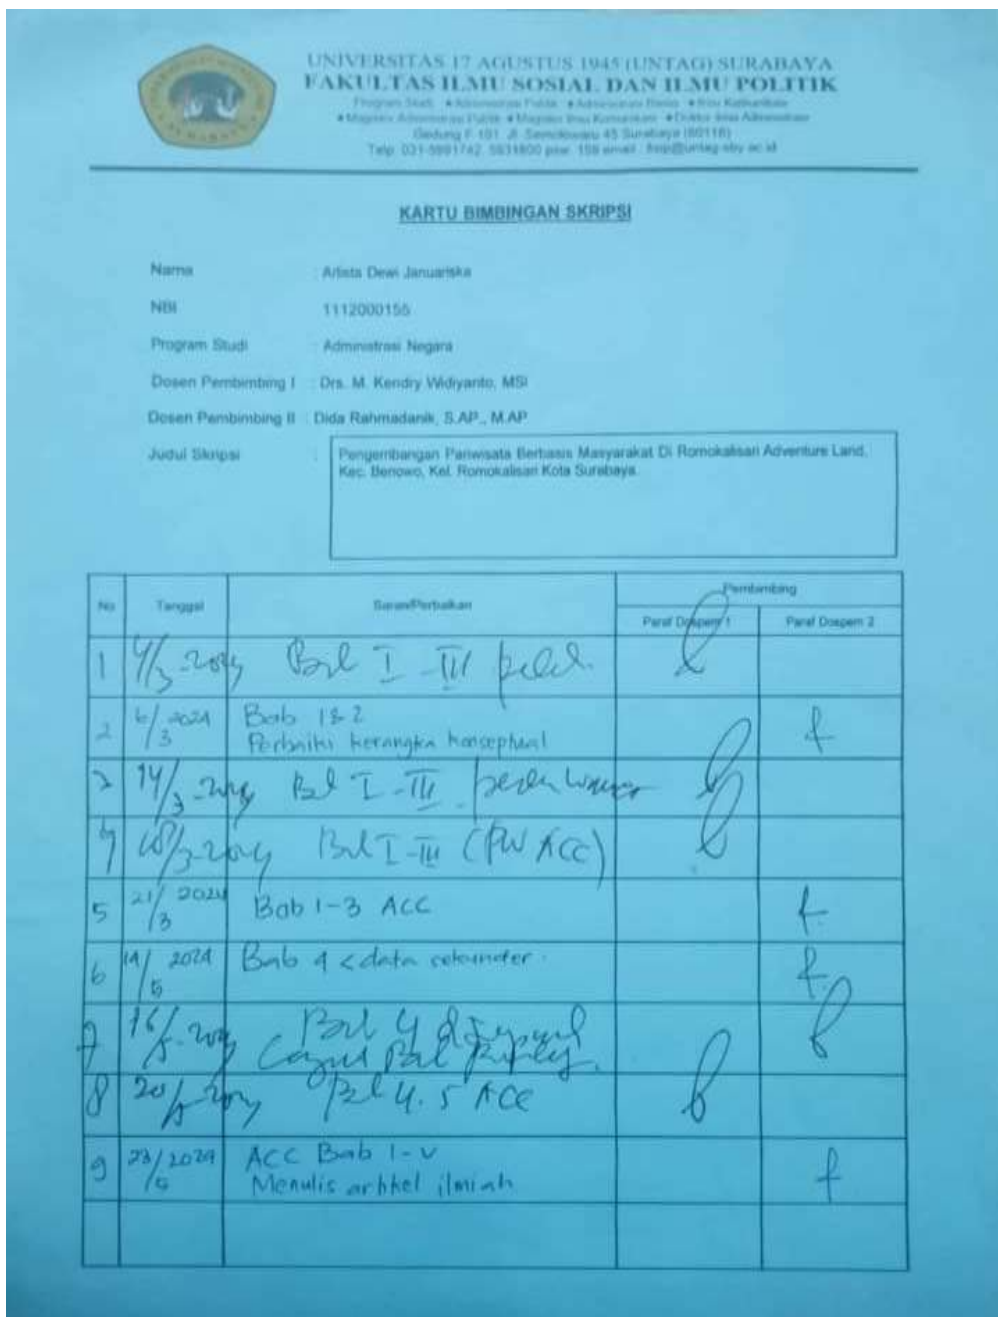 UNIVERSITAS 17 AGUSTUS 1945 (UNTAG) SURABAYA
FAKULTAS ILMU SOSIAL DAN ILMU POLITIK
Program Studi : Administrasi Publik Administrasi Bisnis Ilmu Komunikasi
Magister Administrasi Publik Magister Ilmu Komunikasi Doktor Ilmu Administrasi
Gedung F 101 Jl. Semolowaru 45 Surabaya (60118)
Telp. 031-5991742, 5931800 psw. 159 email : fisip@untag-sby.ac.id
KARTU BIMBINGAN SKRIPSI
Nama : Artista Dewi Januariska
NBI 1112000155
Program Studi : Administrasi Negara
Dosen Pembimbing I : Drs. M. Kendry Widiyanto, MSI
Dosen Pembimbing II : Dida Rahmadanik, S.AP., M.AP
Judul Skripsi : Pengembangan Pariwisata Berbasis Masyarakat Di Romokalisari Adventure Land,
Kec. Benowo, Kel. Romokalisari Kota Surabaya.
No Tanggal Saran/Perbaikan Pembimbing
Paraf Dospem 1 Paraf Dospem 2
1 4/3-2024 Bab I-III
2 6/3 2024 Bab 1&2
Perbaiki kerangka konseptual
3 14/3-2024 Bab I-III
4 18/3-2024 Bab I-III (PW ACC)
5 21/3 2024 Bab 1-3 ACC
6 14/5 2024 Bab 4 < data sekunder.
7 16/5-2024 Bab 4
8 20/5-2024 Bab 4.5 ACC
9 23/5 2024 ACC Bab 1-V
Menulis artikel ilmiah